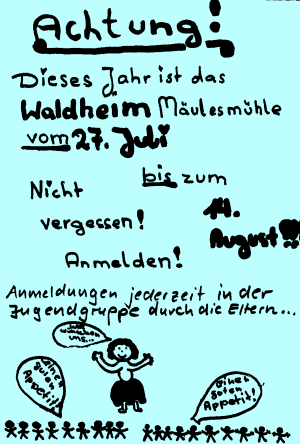 Achtung!
Dieses Jahr ist das
Waldheim Mäulesmühle
vom 27. Juli
bis zum
14.
August!!!
Nicht
vergessen!
Anmelden!
Anmeldungen jederzeit in der
Jugendgruppe durch die Eltern...
wünschen
uns...
Einen
guten
Appetit!
Einen
guten
Appetit!